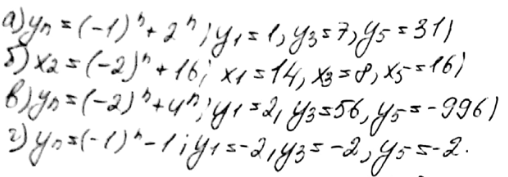 а) yn = (-1)ⁿ + 2ⁿ; y1 = 1, y3 = 7, y5 = 31)
б) x2 = (-2)ⁿ + 16; x1 = 14, x3 = 8, x5 = 16)
в) yn = (-2)ⁿ + 4ⁿ; y1 = 2, y3 = 56, y5 = -996)
г) yn = (-1)ⁿ - 1; y1 = -2, y3 = -2, y5 = -2.